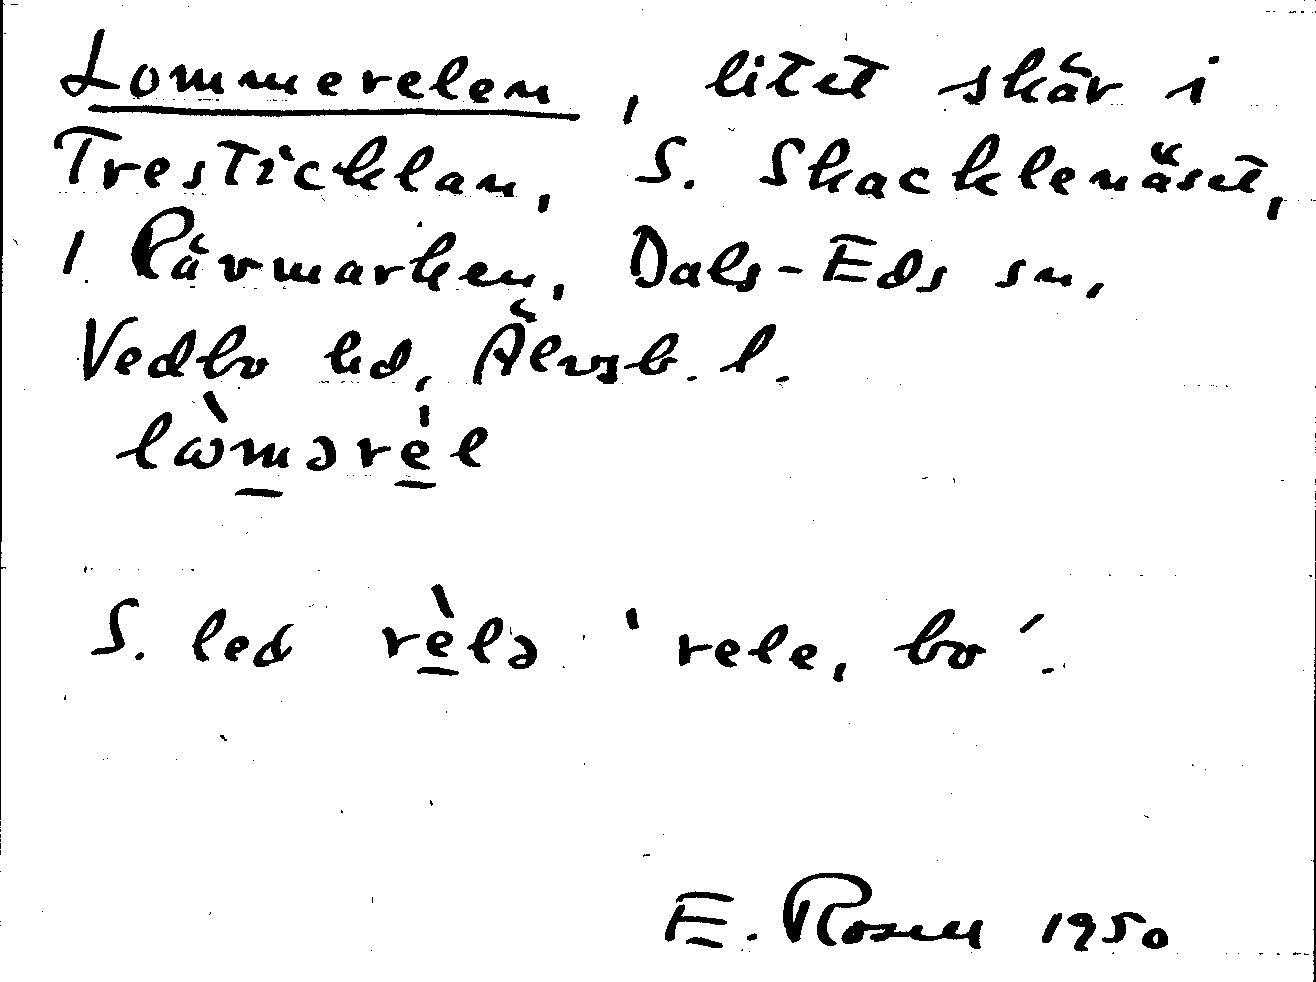 Lommerelen, litet skär i
Tresticklan, S. Skacklenäset,
1 Råvmarken, Dals-Eds sn,
Vedbo hd, Älvsb. l.
lὼmərèl
S. led rèlə 'rele, bo'.
E. Rosell 1950